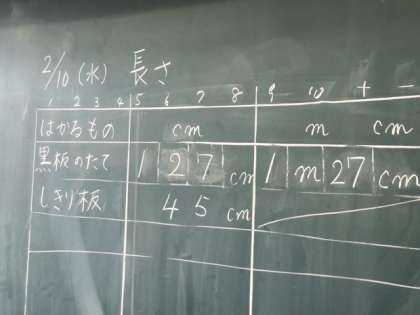 2/10(水) 長さ
1 2 3 4 5 6 7 8 9 10 + -
はかるもの cm m cm
黒板のたて 127cm 1m27cm
しきり板 45cm